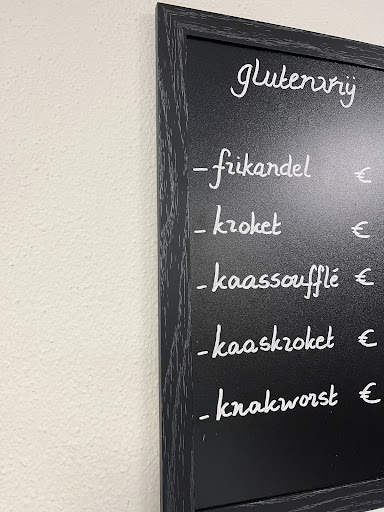 glutenvrij
- frikandel €
- kroket €
- kaassoufflé €
- kaaskroket €
- knakworst €